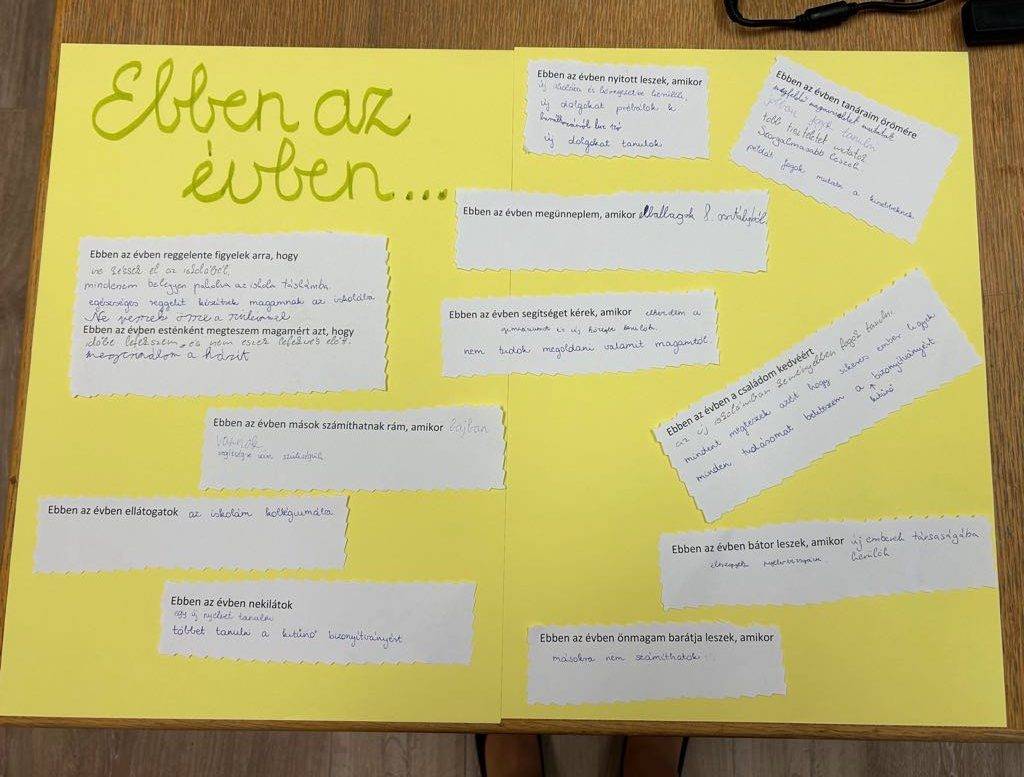 Ebben az
évben...
Ebben az évben reggelente figyelek arra, hogy
ne késsek el az iskolából,
mindenem belegyen pakolva az iskola táskámba.
egészséges reggelit készítsek magamnak az iskolába
Ne vesszek össze a nővéremmel
Ebben az évben esténként megteszem magamért azt, hogy
időbe lefekszem, és nem eszek lefekvés előtt.
megcsinálom a házit
Ebben az évben mások számíthatnak rám, amikor bajban
vannak
segítségre van szükségük
Ebben az évben ellátogatok az iskolám kollégiumába
Ebben az évben nekilátok
egy új nyelvet tanulni
többet tanulni a kitűnő bizonyítványért
Ebben az évben nyitott leszek, amikor
új iskolába és környezetbe kerülök,
új dolgokat próbálok ki
új dolgokat tanulok
Ebben az évben tanáraim örömére
jobban fogok tanulni
több tiszteletet mutatok
Szorgalmasabb leszek
példát fogok mutatni a kisebbeknek
Ebben az évben megünneplem, amikor elballagok 8. osztályból.
Ebben az évben segítséget kérek, amikor elkezdem a
gimnáziumot és új közegbe kerülök.
nem tudok megoldani valamit magamtól.
Ebben az évben a családom kedvéért
az új iskolámban keményebben fogok tanulni
mindent megteszek azért hogy sikeres ember legyek
minden tudásomat beleteszem a bizonyítványért
kitűnő
Ebben az évben bátor leszek, amikor új emberek társaságába
kerülök
elmegyek nyelvvizsgára
Ebben az évben önmagam barátja leszek, amikor
másokra nem számíthatok